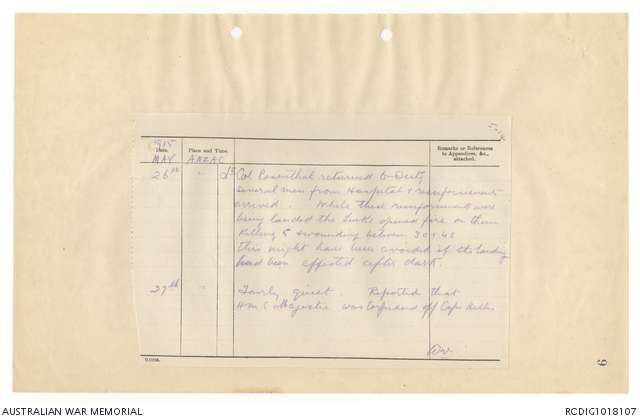 1915
Date. Place and Time. Remarks or References
to Appendices, &c.,
attached.
MAY ANZAC
26th " Lt Col Rosenthal returned to duty
several men from Hospital & reinforcements
arrived. While these reinforcements were
being landed the Turks opened fire on them
killing 5 & wounding between 30 & 40
this might have been avoided if the landing
had been effected after dark.
27th " Fairly quiet. Reported that
HMS Majestic was torpedoed off Cape Helles
6
AUSTRALIAN WAR MEMORIAL
RCDIG1018107